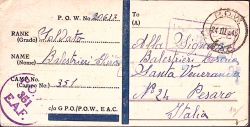 P.O.W. No 20613
RANK Soldato
(Grado)
NAME Balestrieri
(Nome)
CAMP No 351
(Campo No)
c/o G.P.O./P.O.W. E.A.C.
To
(A)
Alla Signora
Balestrieri Teresa
Santa Veneranda
No 24 Pesaro
Italia
351
E.A.F.